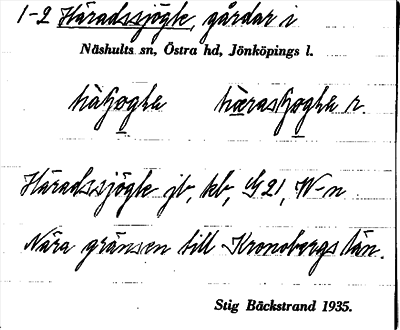 1-2 Häradssjögle, gårdar i
Näshults sn, Östra hd, Jönköpings l.
Häradssjögle jb, kb, G 21, W-n
Nära gränsen till Kronobergs län.
Stig Bäckstrand 1935.